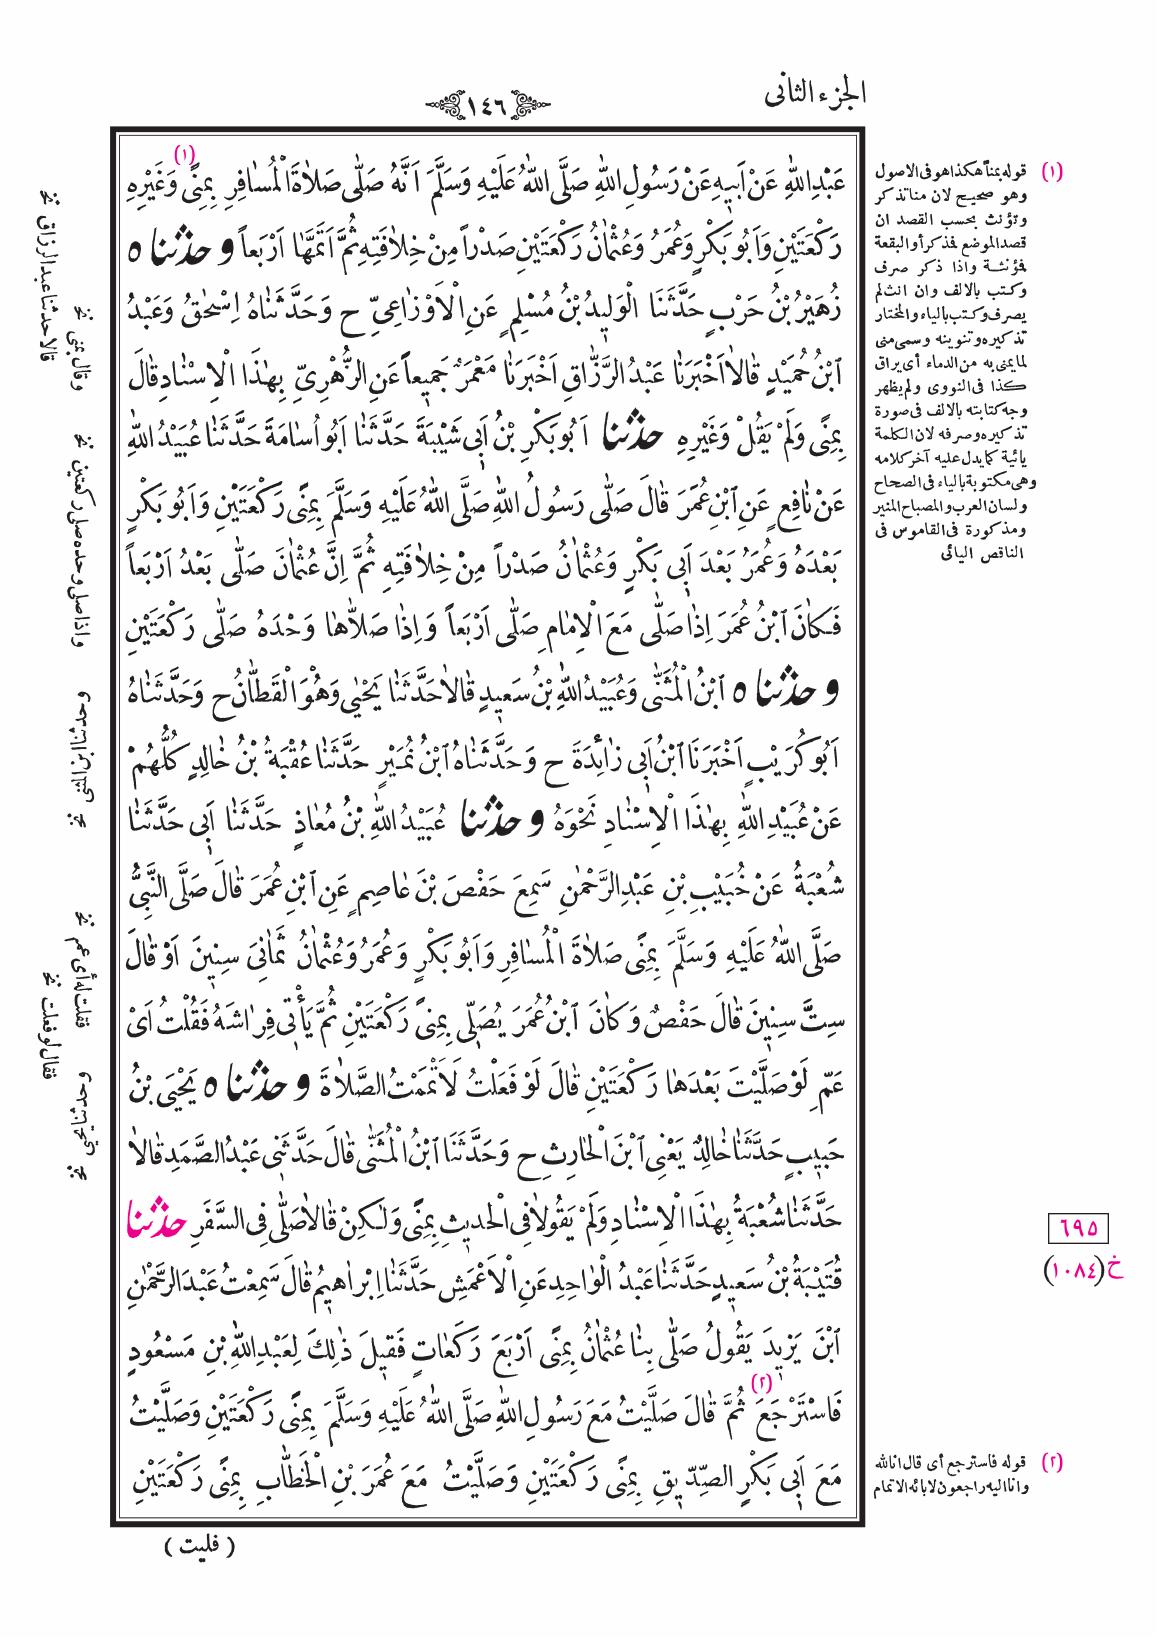 الجزء الثانى
١٤٦
عَبْدِاللهِ عَنْ اَبيهِ عَنْ رَسُولِ اللهِ صَلَّى اللهُ عَلَيْهِ وَسَلَّمَ اَنَّهُ صَلّٰى صَلاٰةَ الْمُسٰافِرِ بِمِنًى (١) وَغَيْرِهِ
رَكْعَتَيْنِ وَاَبُو بَكْرٍ وَعُمَرُ وَعُثْمٰانُ رَكْعَتَيْنِ صَدْراً مِنْ خِلاٰفَتِهِ ثُمَّ اَتَمَّهٰا اَرْبَعاً و حدثنا ٥
زُهَيْرُ بْنُ حَرْبٍ حَدَّثَنَا الْوَليدُ بْنُ مُسْلِمٍ عَنِ الْاَوْزٰاعِىِّ ح وَحَدَّثَنٰاهُ اِسْحٰقُ وَعَبْدُ
ابْنُ حُمَيْدٍ قٰالاٰ اَخْبَرَنٰا عَبْدُ الرَّزّٰاقِ اَخْبَرَنٰا مَعْمَرٌ جَميعاً عَنِ الزُّهْرِىِّ بِهٰذَا الْاِسْنٰادِ قٰالَ
بِمِنًى وَلَمْ يَقُلْ وَغَيْرِهِ حدثنا اَبُو بَكْرِ بْنُ اَبى شَيْبَةَ حَدَّثَنٰا اَبُو اُسٰامَةَ حَدَّثَنٰا عُبَيْدُ اللهِ
عَنْ نٰافِعٍ عَنِ ابْنِ عُمَرَ قٰالَ صَلّٰى رَسُولُ اللهِ صَلَّى اللهُ عَلَيْهِ وَسَلَّمَ بِمِنًى رَكْعَتَيْنِ وَاَبُو بَكْرٍ
بَعْدَهُ وَعُمَرُ بَعْدَ اَبى بَكْرٍ وَعُثْمٰانُ صَدْراً مِنْ خِلاٰفَتِهِ ثُمَّ اِنَّ عُثْمٰانَ صَلّٰى بَعْدُ اَرْبَعاً
فَكٰانَ ابْنُ عُمَرَ اِذٰا صَلّٰى مَعَ الْاِمٰامِ صَلّٰى اَرْبَعاً وَاِذٰا صَلاّٰهٰا وَحْدَهُ صَلّٰى رَكْعَتَيْنِ
و حدثنا ٥ ابْنُ الْمُثَنّٰى وَعُبَيْدُ اللهِ بْنُ سَعيدٍ قٰالاٰ حَدَّثَنٰا يَحْيٰى وَهُوَ الْقَطّٰانُ ح وَحَدَّثَنٰاهُ
اَبُو كُرَيْبٍ اَخْبَرَنَا ابْنُ اَبى زٰائِدَةَ ح وَحَدَّثَنٰاهُ ابْنُ نُمَيْرٍ حَدَّثَنٰا عُقْبَةُ بْنُ خٰالِدٍ كُلُّهُمْ
عَنْ عُبَيْدِ اللهِ بِهٰذَا الْاِسْنٰادِ نَحْوَهُ و حدثنا عُبَيْدُ اللهِ بْنُ مُعٰاذٍ حَدَّثَنٰا اَبى حَدَّثَنٰا
شُعْبَةُ عَنْ خُبَيْبِ بْنِ عَبْدِ الرَّحْمٰنِ سَمِعَ حَفْصَ بْنَ عٰاصِمٍ عَنِ ابْنِ عُمَرَ قٰالَ صَلَّى النَّبِىُّ
صَلَّى اللهُ عَلَيْهِ وَسَلَّمَ بِمِنًى صَلاٰةَ الْمُسٰافِرِ وَاَبُو بَكْرٍ وَعُمَرُ وَعُثْمٰانُ ثَمٰانِىَ سِنينَ اَوْ قٰالَ
سِتَّ سِنينَ قٰالَ حَفْصٌ وَكٰانَ ابْنُ عُمَرَ يُصَلّى بِمِنًى رَكْعَتَيْنِ ثُمَّ يَأْتى فِرٰاشَهُ فَقُلْتُ اَىْ
عَمِّ لَوْ صَلَّيْتَ بَعْدَهٰا رَكْعَتَيْنِ قٰالَ لَوْ فَعَلْتُ لَاَتْمَمْتُ الصَّلاٰةَ و حدثنا ٥ يَحْيَى بْنُ
حَبيبٍ حَدَّثَنٰا خٰالِدٌ يَعْنِى ابْنَ الْحٰارِثِ ح وَحَدَّثَنَا ابْنُ الْمُثَنّٰى قٰالَ حَدَّثَنى عَبْدُ الصَّمَدِ قٰالاٰ
حَدَّثَنٰا شُعْبَةُ بِهٰذَا الْاِسْنٰادِ وَلَمْ يَقُولاٰ فِى الْحَديثِ بِمِنًى وَلٰكِنْ قٰالاٰ صَلّٰى فِى السَّفَرِ حدثنا
قُتَيْبَةُ بْنُ سَعيدٍ حَدَّثَنٰا عَبْدُ الْوٰاحِدِ عَنِ الْاَعْمَشِ حَدَّثَنٰا اِبْرٰاهيمُ قٰالَ سَمِعْتُ عَبْدَ الرَّحْمٰنِ
ابْنَ يَزيدَ يَقُولُ صَلّٰى بِنٰا عُثْمٰانُ بِمِنًى اَرْبَعَ رَكَعٰاتٍ فَقيلَ ذٰلِكَ لِعَبْدِ اللهِ بْنِ مَسْعُودٍ
فَاسْتَرْجَعَ (٢) ثُمَّ قٰالَ صَلَّيْتُ مَعَ رَسُولِ اللهِ صَلَّى اللهُ عَلَيْهِ وَسَلَّمَ بِمِنًى رَكْعَتَيْنِ وَصَلَّيْتُ
مَعَ اَبى بَكْرٍ الصِّدّيقِ بِمِنًى رَكْعَتَيْنِ وَصَلَّيْتُ مَعَ عُمَرَ بْنِ الْخَطّٰابِ بِمِنًى رَكْعَتَيْنِ
( فليت )
(١) قوله بمناً هكذا هو فى الاصول
وهو صحيح لان منا تذكر
وتؤنث بحسب القصد ان
قصد الموضع فمذكر أو البقعة
فمؤنثة واذا ذكر صرف
وكتب بالالف وان انث لم
يصرف وكتب بالياء والمختار
تذكيره وتنوينه وسمى منى
لما يمنى به من الدماء أى يراق
كذا فى النووى ولم يظهر
وجه كتابته بالالف فى صورة
تذكيره وصرفه لان الكلمة
يائية كما يدل عليه آخر كلامه
وهى مكتوبة بالياء فى الصحاح
ولسان العرب والمصباح المنير
ومذكورة فى القاموس فى
الناقص اليائى
٦٩٥
خ(١٠٨٤)
(٢) قوله فاسترجع أى قال انا لله
وانا اليه راجعون لابائه الاتمام
قالا حدثنا عبد الرزاق نخ
وقال بمنى نخ
واذا صلى وحده صلى ركعتين نخ
وحدثنا ابن المثنى نخ
فقلت له أى عم نخ
فقال لو فعلت نخ